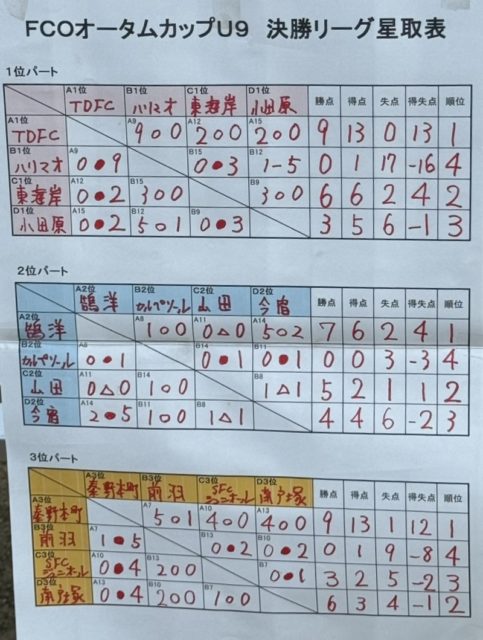 FCOオータムカップU9 決勝リーグ星取表
1位パート
A1位 TDFC B1位 ハリマオ C1位 東海岸 D1位 小田原 勝点 得点 失点 得失点 順位
A1位 TDFC A9 9○0 A12 2○0 A15 2○0 9 13 0 13 1
B1位 ハリマオ A9 0●9 B15 0●3 B12 1-5 0 1 17 -16 4
C1位 東海岸 A12 0●2 B15 3○0 B9 3○0 6 6 2 4 2
D1位 小田原 A15 0●2 B12 5○1 B9 0●3 3 5 6 -1 3
2位パート
A2位 鵠洋 B2位 カルペソール C2位 山田 D2位 今宿 勝点 得点 失点 得失点 順位
A2位 鵠洋 A8 1○0 A11 0△0 A14 5○2 7 6 2 4 1
B2位 カルペソール A8 0●1 B14 0●1 B11 0●1 0 0 3 -3 4
C2位 山田 A11 0△0 B14 1○0 B8 1△1 5 2 1 1 2
D2位 今宿 A14 2●5 B11 1○0 B8 1△1 4 4 6 -2 3
3位パート
A3位 秦野本町 B3位 前羽 C3位 SFC D3位 南戸塚 勝点 得点 失点 得失点 順位
A3位 秦野本町 A7 5○1 A10 4○0 A13 4○0 9 13 1 12 1
B3位 前羽 A7 1●5 B13 0●2 B10 0●2 0 1 9 -8 4
C3位 SFC A10 0●4 B13 2○0 B7 0●1 3 2 5 -2 3
D3位 南戸塚 A13 0●4 B10 2○0 B7 1○0 6 3 4 -1 2